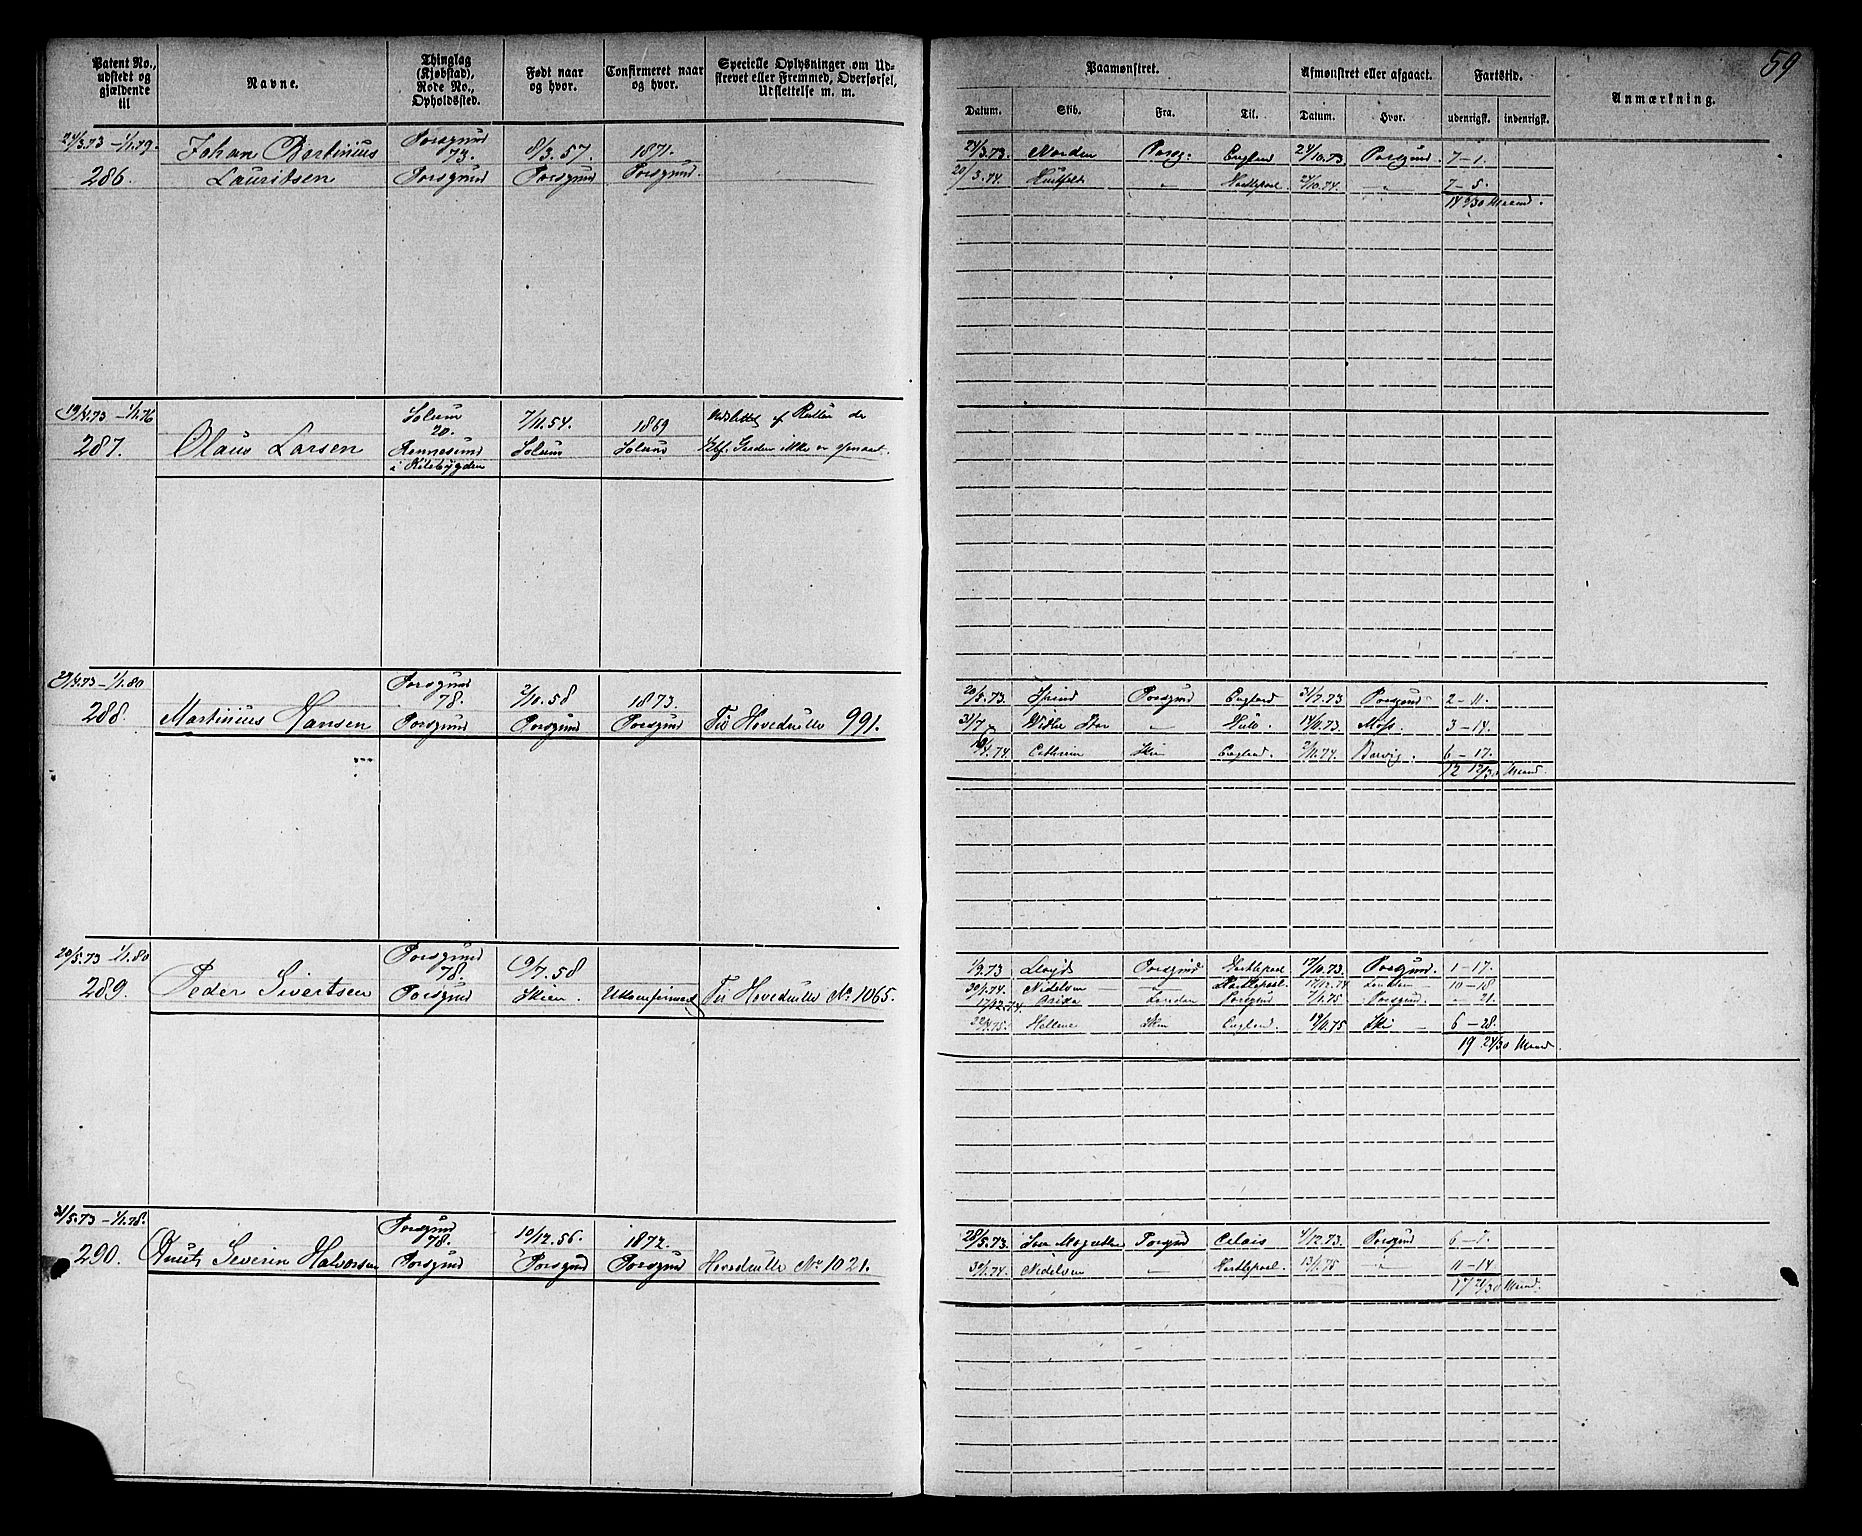 59
Patent No., udstedt og gjældende til
Navne.
Thinglag (Kjøbstad), Rode No., Opholdssted.
Født naar og hvor.
Confirmeret naar og hvor.
Specielle Oplysninger om Udskrevet eller Fremmed, Overførsel, Udslettelse m. m.
Paamønstret.
Afmønstret eller afgaaet.
Fartstid.
Anmærkning.
Datum. Skib. Fra. Til. Datum. Hvor. udenrigsk. indenrigsk.
24/3.73 – 1/1.79. Johan Bertinius Porsgrund 73. 8/3.57. 1871.
286. Lauritsen Porsgrund Porsgrund Porsgrund.
24/3.73. Norden Porsg: England 24/10.73 Porsgrund 7–1.
20/3.74. " Hartlepool 24/10.74. — " — 7–5.
14 6/30 Maaned.
19/4.73 – 1/1.76 Solum 20. 7/11.54. 1869 Udslettet af Rullen da
287. Olaus Larsen Rønnesund i Kilebygden Solum Solum ikke er
29/4.73 – 1/1.80 Porsgrund 78. 2/10.58 1873.
288. Martinius Hansen Porsgrund Porsgrund Porsgrund Til Hovedrulle 991.
20/5.73 Porsgrund England 31/7.73 Porsgrund 2–11
31/7 Hull. 14/11.73. Moss. 3–14.
Skien England. 2/11.74. 6–17.
12 12/30 Maaned.
20/5.73 – 1/1.80 Porsgrund 78. 9/7.58
289. Peder Sivertsen Porsgrund Skien. Ukonfirmeret Til Hovedrulle No. 1065.
1/9.73 Lloyds Porsgrund Hartlepool 17/10.73. Porsgrund. 1–17.
30/1.74. Nidelven — Hartlepool. 17/12.74 London 10–18
17/12.74. London Porsgrund 7/1.75 Porsgrund. "–21.
Hellene Skien England. 19/11.75 Skien 6–28.
19 24/30 Maaned.
31/5.73 – 1/1.78. Porsgrund 78. 19/12.56. 1872.
290. Knut Severin Halvorsen Porsgrund Porsgrund Porsgrund Hovedrulle No. 1021.
28/5.73. Porsgrund Calais 4/12.73. Porsgrund 6–7
30/1.74. Nidelven — Hartlepool. 13/1.75 " 11–14
17 21/30 Maaned.